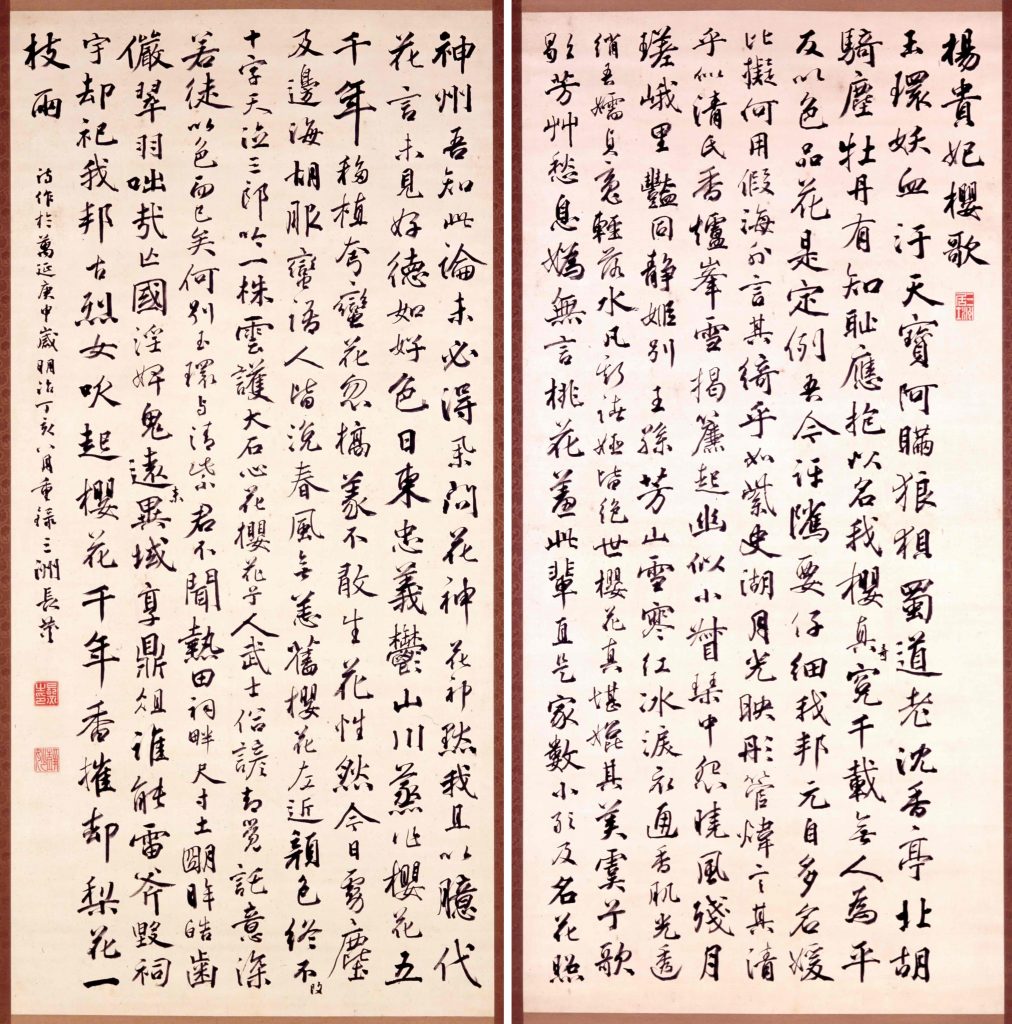 楊貴妃櫻歌
玉環妖血汙天寶阿瞞狼狽蜀道老沈香亭北胡
騎塵牡丹有知恥應抱以名我櫻真奇冤千載無人為平
反以色品花是定例吾今評隲要仔細我邦元自多名媛
比擬何用假海外言其綺乎如紫史湖月光映彤管煒言其清
乎似清氏香爐峯雪揭簾起幽似小督琴中怨曉風殘月
瑳峨里豔同靜姬別 主孫芳山雪寒紅冰淚衣通香肌光透
綃吾嬬貞意輕落水凡斯諸娅皆絕世櫻花真堪媲其美虞兮歌
歇芳艸愁息嬀無言桃花羞此輩直是家數小那及名花照
神州吾知此論未必得來問花神花神默我且以臆代
花言未見好德如好色日東忠義鬱山川蒸作櫻花五
千年移植夸蠻花忽槁義不敢生花性然今日雰塵
及邊海胡服蠻語人皆浼春風無恙舊櫻花左近顏色終不改
十字天泣三郎吟一株雲護大石心花櫻花兮人武士俗諺却覺託意深
若徒以色而已矣何別玉環与清紫君不聞熱田祠畔尺寸土明眸皓齒
儼翠羽咄哉亡國淫婢鬼遠來異域享鼎俎誰能雷斧毀祠
宇却祀我邦古烈女吹起櫻花千年香摧却梨花一
枝雨
詩作於萬延庚申歲明治丁亥八月重錄三洲長炗